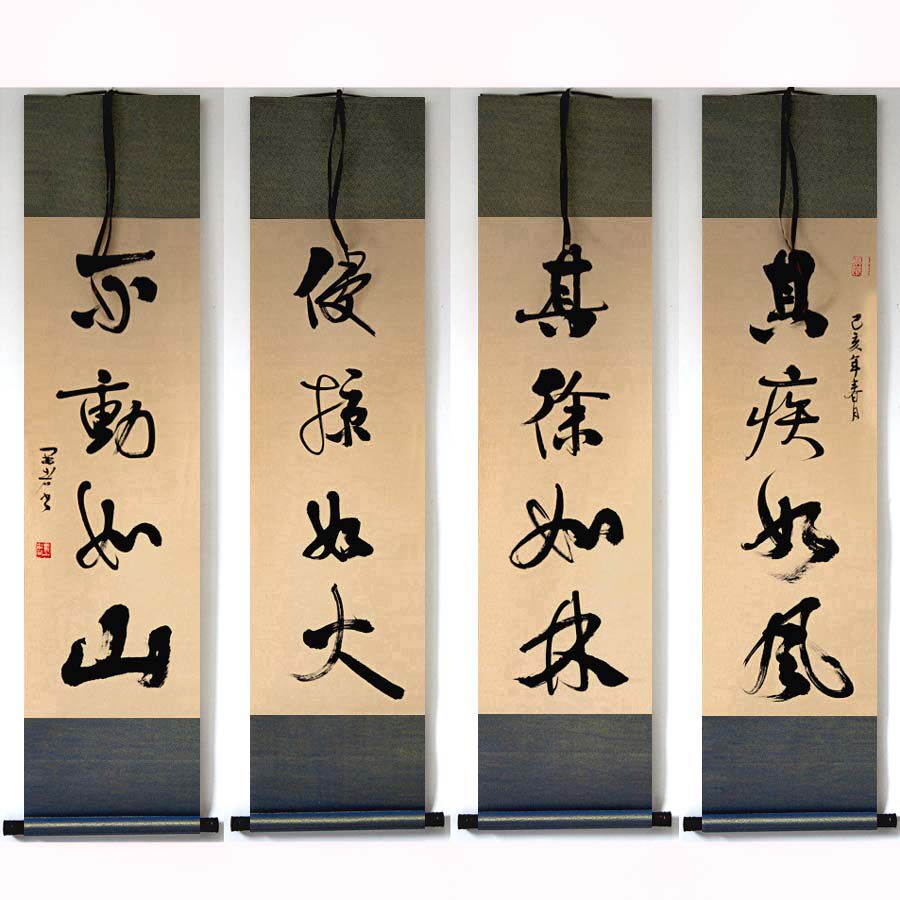 己亥年春月
其疾如風
其徐如林
侵掠如火
不動如山